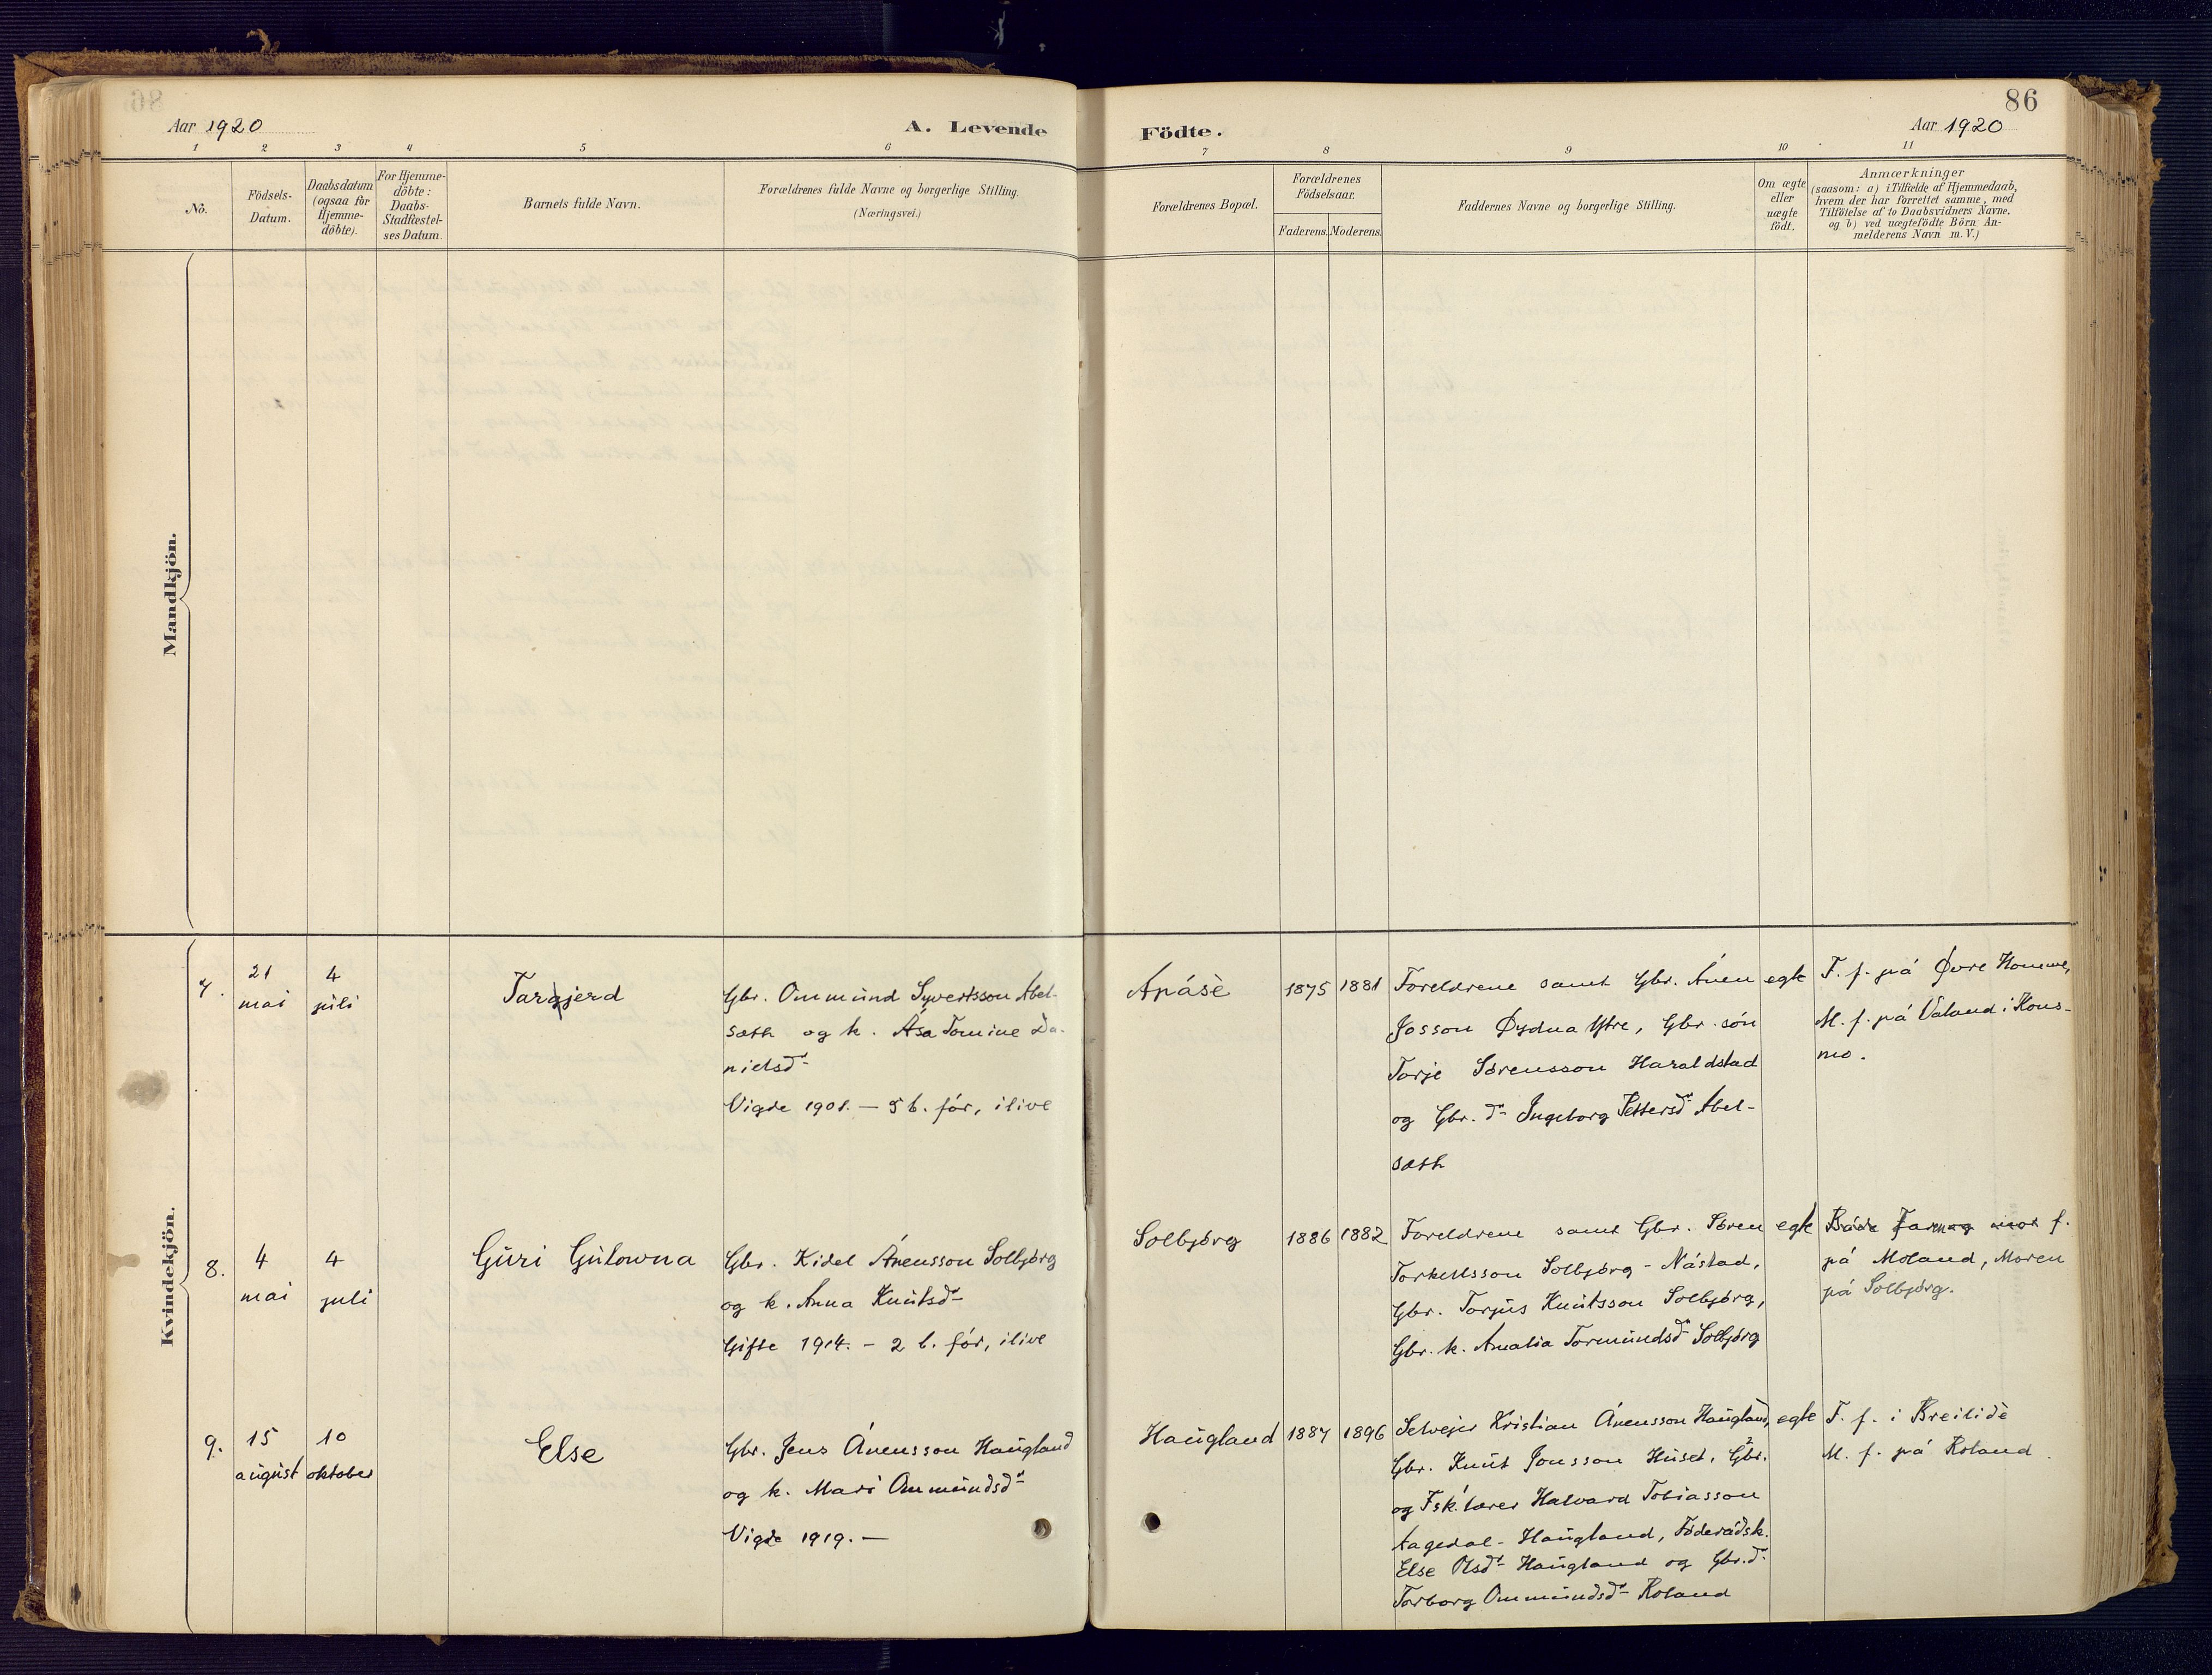 86
Aar 1920
A. Levende
Födte.
Aar 1920
1 2 3 4 5 6 7 8 9 10 11
No.
Födsels-
Datum.
Daabsdatum
(ogsaa for
Hjemme-
döbte).
For Hjemme-
döbte:
Daabs-
Stadfæstel-
ses Datum.
Barnets fulde Navn.
Forældrenes fulde Navne og borgerlige Stilling.
(Næringsvei.)
Forældrenes Bopæl.
Forældrenes
Födselsaar.
Faderens. Moderens.
Faddernes Navne og borgerlige Stilling.
Om ægte
eller
uægte
födt.
Anmærkninger
(saasom: a) i Tilfælde af Hjemmedaab,
hvem der har forrettet samme, med
Tilföielse af to Daabsvidners Navne,
og b) ved uægtefödte Börn An-
melderens Navn m. V.)
Mandkjön.
Kvindekjön.
7.
21
mai
4
juli
Targjerd
Gbr. Ommund Syvertsson Abel-
sæth og k. Åsa Tomine Da-
nielsd.
Vigde 1901. — 5 b. før, ilive
Apåsè
1875 1881
Foreldrene samt Gbr. Ånen
Josson Øydna Ytre, Gbr. søn
Torje Sørensson Haraldstad
og Gbr. d. Ingeborg Pettersd. Abel-
sæth
egte
F. f. på Øvre Homme,
M. f. på Valand i Kons-
mo.
8.
4
mai
4
juli
Guri Gulowna
Gbr. Kidel Ånensson Solbjørg
og k. Anna Knutsd.
Gifte 1914. – 2 b. før, ilive
Solbjørg
1886 1882
Foreldrene samt Gbr. Søren
Torkellsson Solbjørg - Nåstad,
Gbr. Torjus Knutsson Solbjørg,
Gbr. k. Amalia Tormundsd. Solbjørg
egte
Både Faren og mor f.
på Moland, Moren
på Solbjørg.
9.
15
august
10
oktober
Else
Gbr. Jens Ånensson Haugland
og k. Mari Ommundsd.
Vigde 1919. —
Haugland
1887 1896
Selvejer Kristian Ånensson Haugland,
Gbr. Knut Jonsson Huset, Gbr.
og Fsk. lærer Halvard Tobiasson
Aagedal - Haugland, Føderådsk.
Else Olsd. Haugland og Gbr. d.
Torborg Ommundsd. Roland
egte
F. f. i Breilidè
M. f. på Roland.